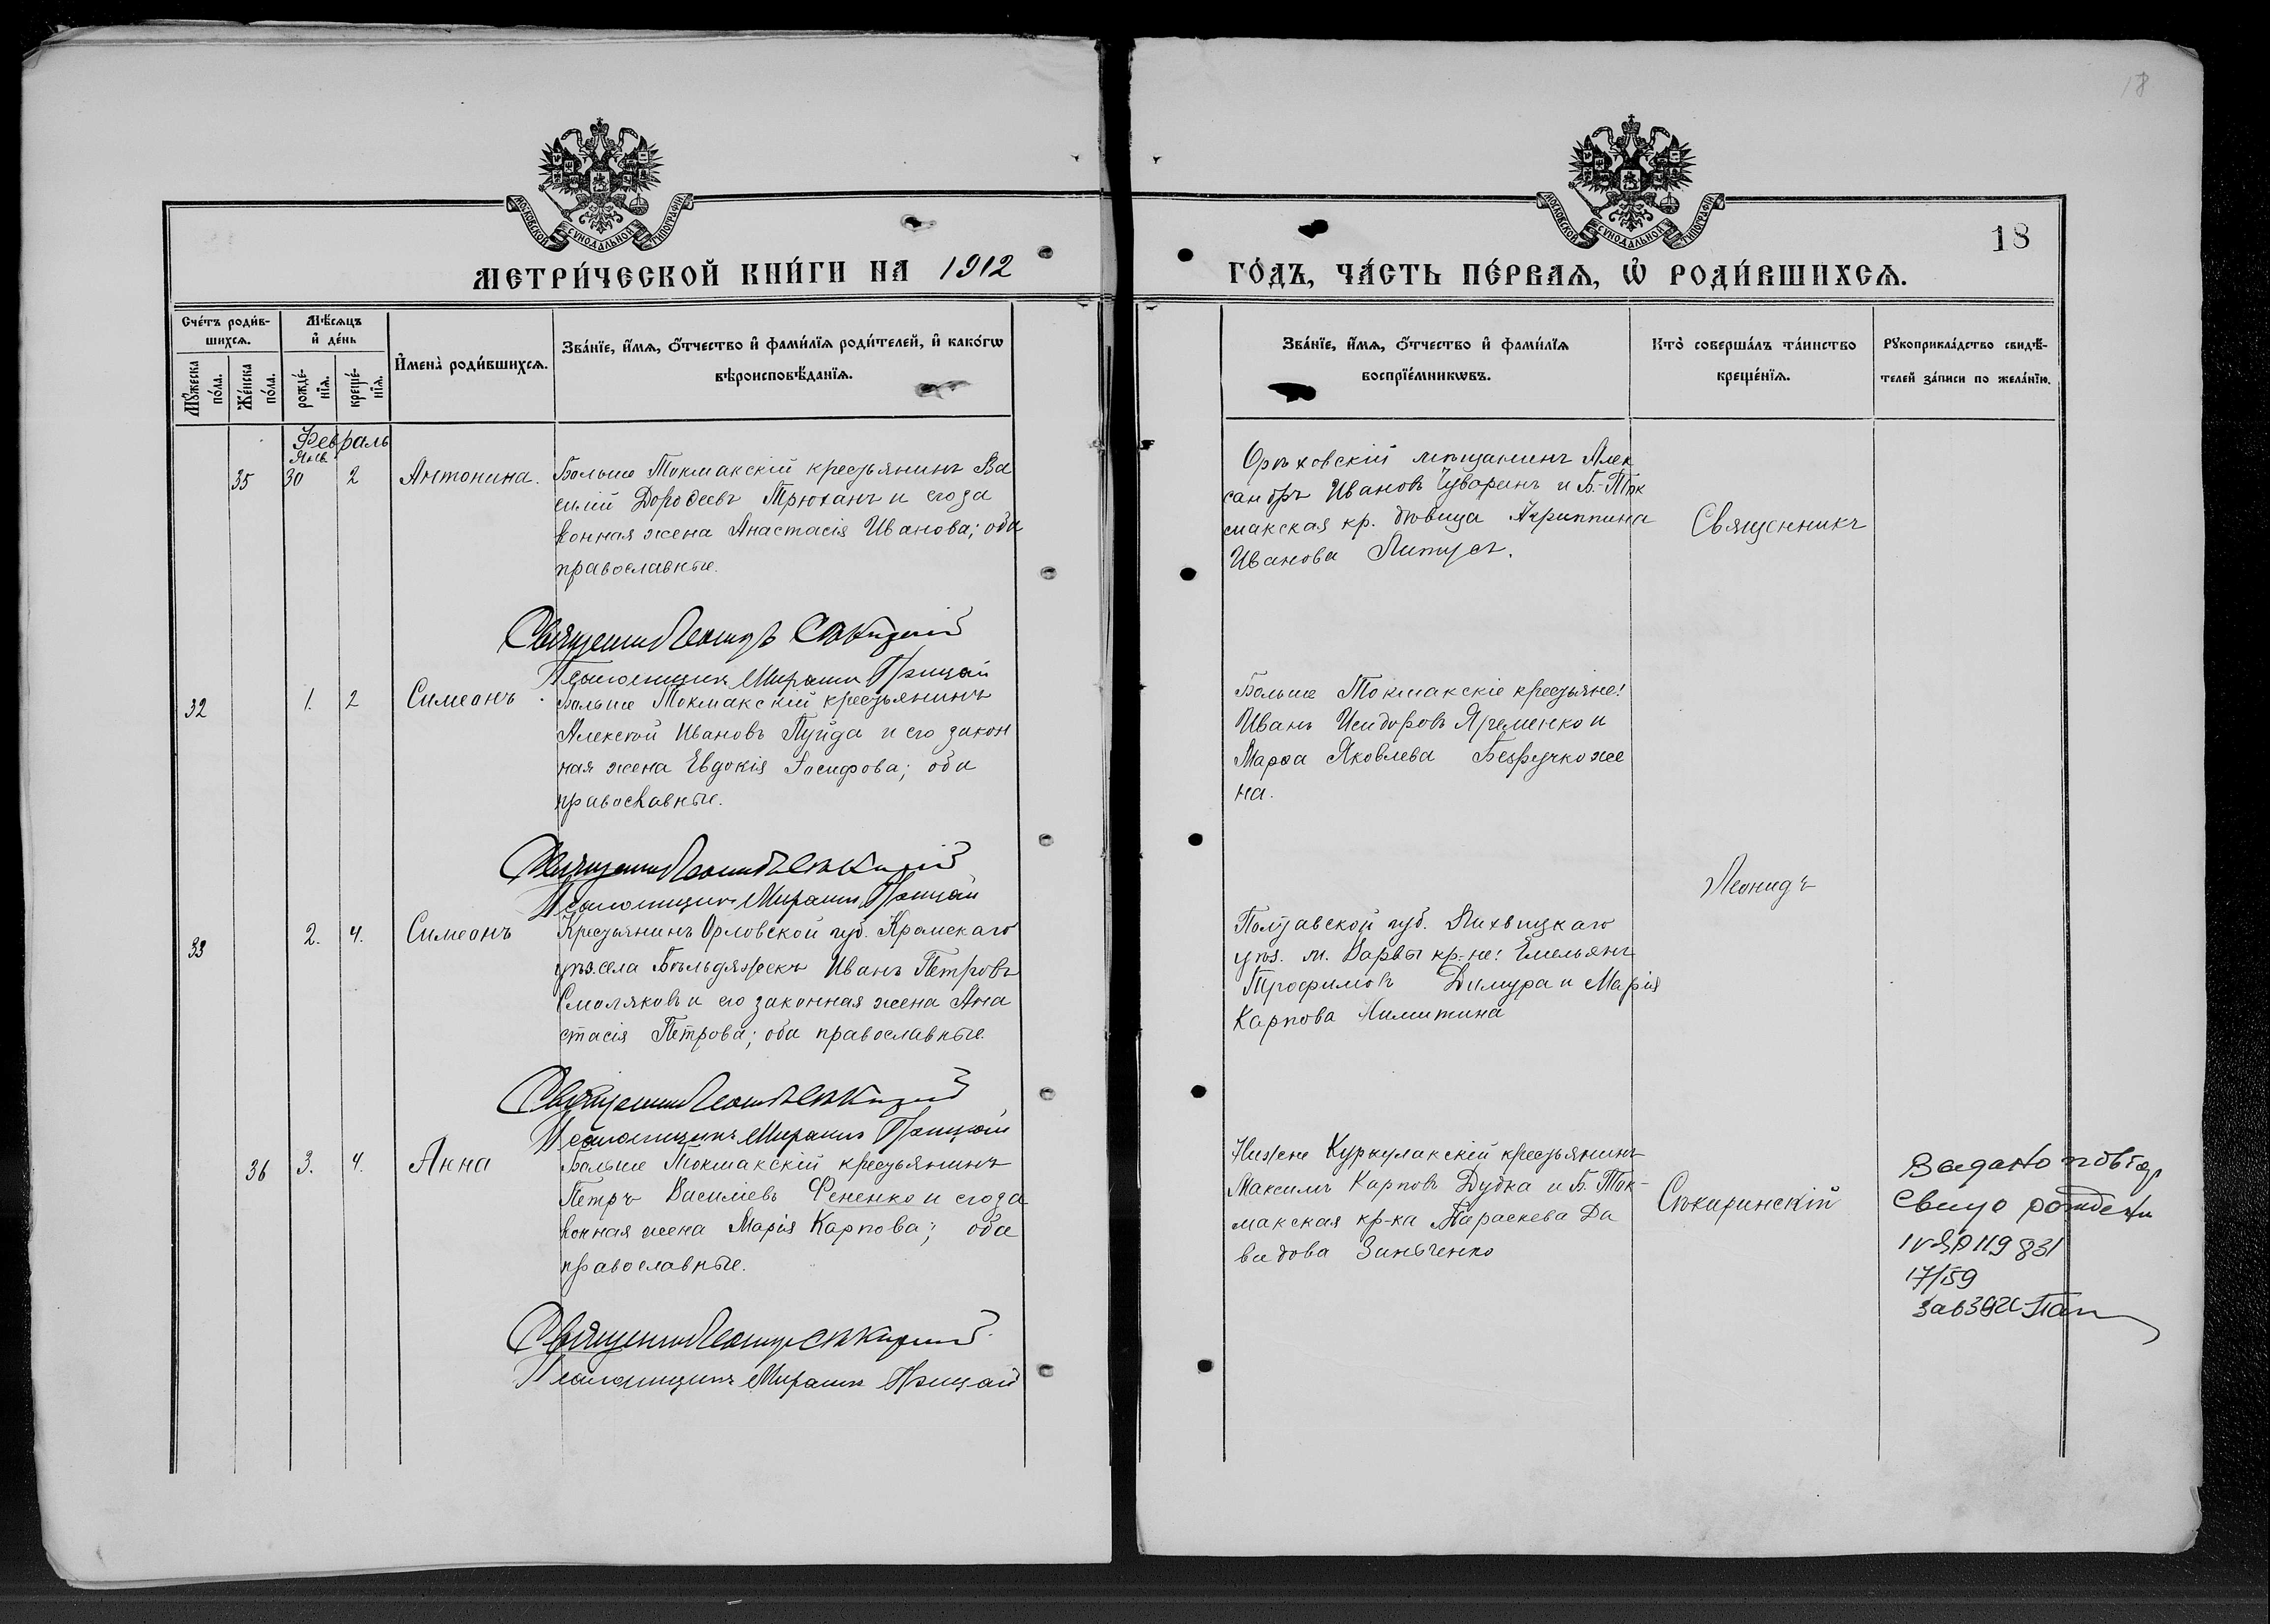 18
МОСКОВСКОЙ СУНОДАЛЬНОЙ ТИПОГРАФІИ
МОСКОВСКОЙ СУНОДАЛЬНОЙ ТИПОГРАФІИ
18
МЕТРИ́ЧЕСКОЙ КНИ́ГИ НА 1912
ГО́ДЪ, ЧА́СТЬ ПЕ́РВАѦ, Ѽ РОДИ́ВШИХСѦ.
Сче́тъ роди́в-
шихсѧ.
Мꙋ́жеска по́ла.
Же́нска по́ла.
Мѣ́сѧцъ
и҆ де́нь
рожде́-
нїѧ.
креще́-
нїѧ.
И҆мена̀ роди́вшихсѧ.
Зва́нїе, и҆́мѧ, ѻ҆́тчество и҆ фами́лїѧ роди́телей, и҆ како́гѡ
вѣроисповѣ́данїѧ.
Зва́нїе, и҆́мѧ, ѻ҆́тчество и҆ фами́лїѧ
воспрїе́мникѡвъ.
Кто̀ соверша́лъ та́инство
креще́нїѧ.
Рꙋкоприкла́дство свидѣ́-
телей за́писи по жела́нїю.
Февраль
Янв.
35 30 2 Антонина. Больше Токмакскій крестьянинъ Ва
силій Дорофеевъ Трюханъ и его за
конная жена Анастасія Иванова; оба
православные.
Орѣховскій мѣщанинъ Алек
сандръ Ивановъ Чуваринъ и Б.-Ток
макская кр. дѣвица Агриппина
Иванова Литусъ.
Священникъ
Священникъ Леонидъ
Псаломщикъ
32 1. 2 Симеонъ Больше Токмакскій крестьянинъ
Алексѣй Ивановъ Пуйда и его закон
ная жена Евдокія Іосифова; оба
православные.
Больше Токмакскіе крестьяне:
Иванъ Исидоровъ Яременко и
Марѳа Яковлева Безручко же
на.
Священникъ Леонидъ
Псаломщикъ
Леонидъ
33 2. 4. Симеонъ Крестьянинъ Орловской губ. Кромскаго
уѣз. села Иванъ Петровъ
Смоляковъ и его законная жена Ана
стасія Петрова; оба православные.
Полтавской губ. Лохвицкаго
уѣз. м. Варвы кр-не: Емельянъ
Трофимовъ Димура и Марія
Карпова
Священникъ Леонидъ
Псаломщикъ
36 3. 4. Анна Больше Токмакскій крестьянинъ
Петръ Василіевъ Фененко и его за
конная жена Марія Карпова; оба
православные.
Нижне Куркулакскій крестьянинъ
Максимъ Карповъ Дудка и Б. Ток-
макская кр-ка Параскева Да
видова Зинченко
Сѣкиринскій
Видано повтор
рождення
119831
17/59
Священникъ Леонидъ
Псаломщикъ